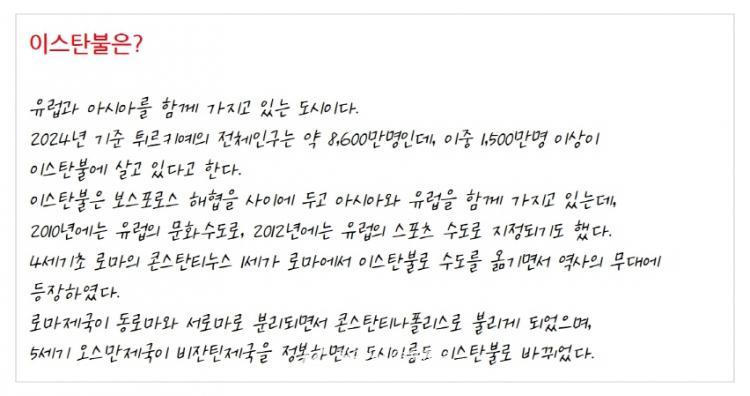 이스탄불은?
유럽과 아시아를 함께 가지고 있는 도시이다.
2024년 기준 튀르키예의 전체인구는 약 8,600만명인데, 이중 1,500만명 이상이
이스탄불에 살고 있다고 한다.
이스탄불은 보스포로스 해협을 사이에 두고 아시아와 유럽을 함께 가지고 있는데,
2010년에는 유럽의 문화수도로, 2012년에는 유럽의 스포츠 수도로 지정되기도 했다.
4세기초 로마의 콘스탄티누스 1세가 로마에서 이스탄불로 수도를 옮기면서 역사의 무대에
등장하였다.
로마제국이 동로마와 서로마로 분리되면서 콘스탄티나폴리스로 불리게 되었으며,
5세기 오스만제국이 비잔틴제국을 정복하면서 도시이름도 이스탄불로 바뀌었다.